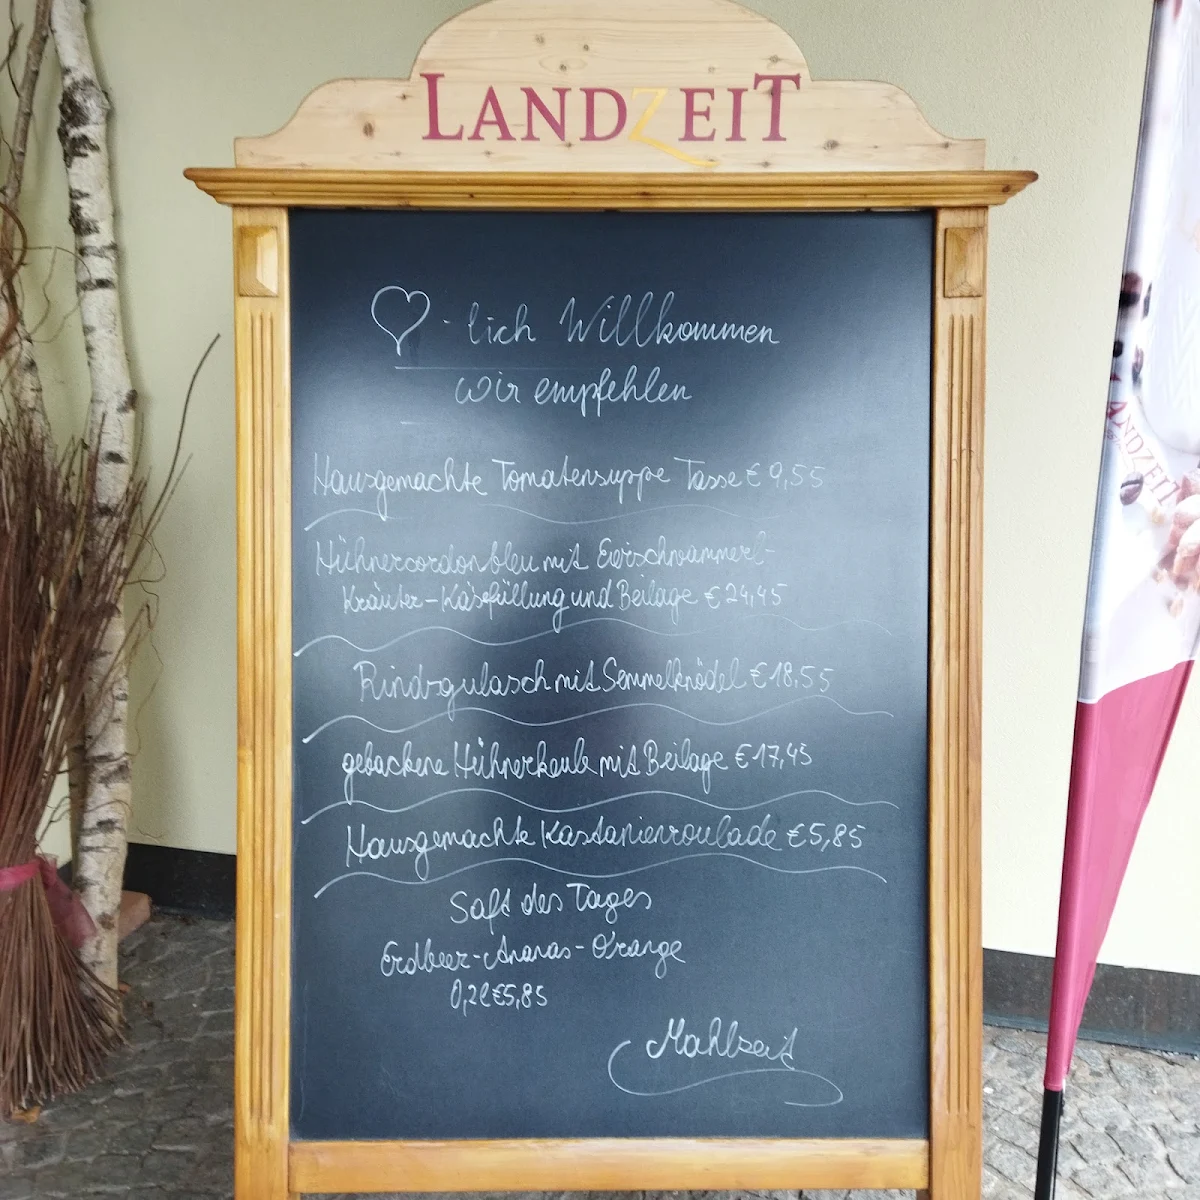 LANDZEIT
♡-lich Willkommen
wir empfehlen
Hausgemachte Tomatensuppe Tasse € 9,55
Hühnercordonbleu mit Eierschwammerl-
Kräuter-Käsefüllung und Beilage € 24,45
Rindsgulasch mit Semmelknödel € 18,55
gebackene Hühnerkeule mit Beilage € 17,45
Hausgemachte Kastanienroulade € 5,85
Saft des Tages
Erdbeer-Ananas-Orange
0,2l €5,85
Mahlzeit
LANDZEIT